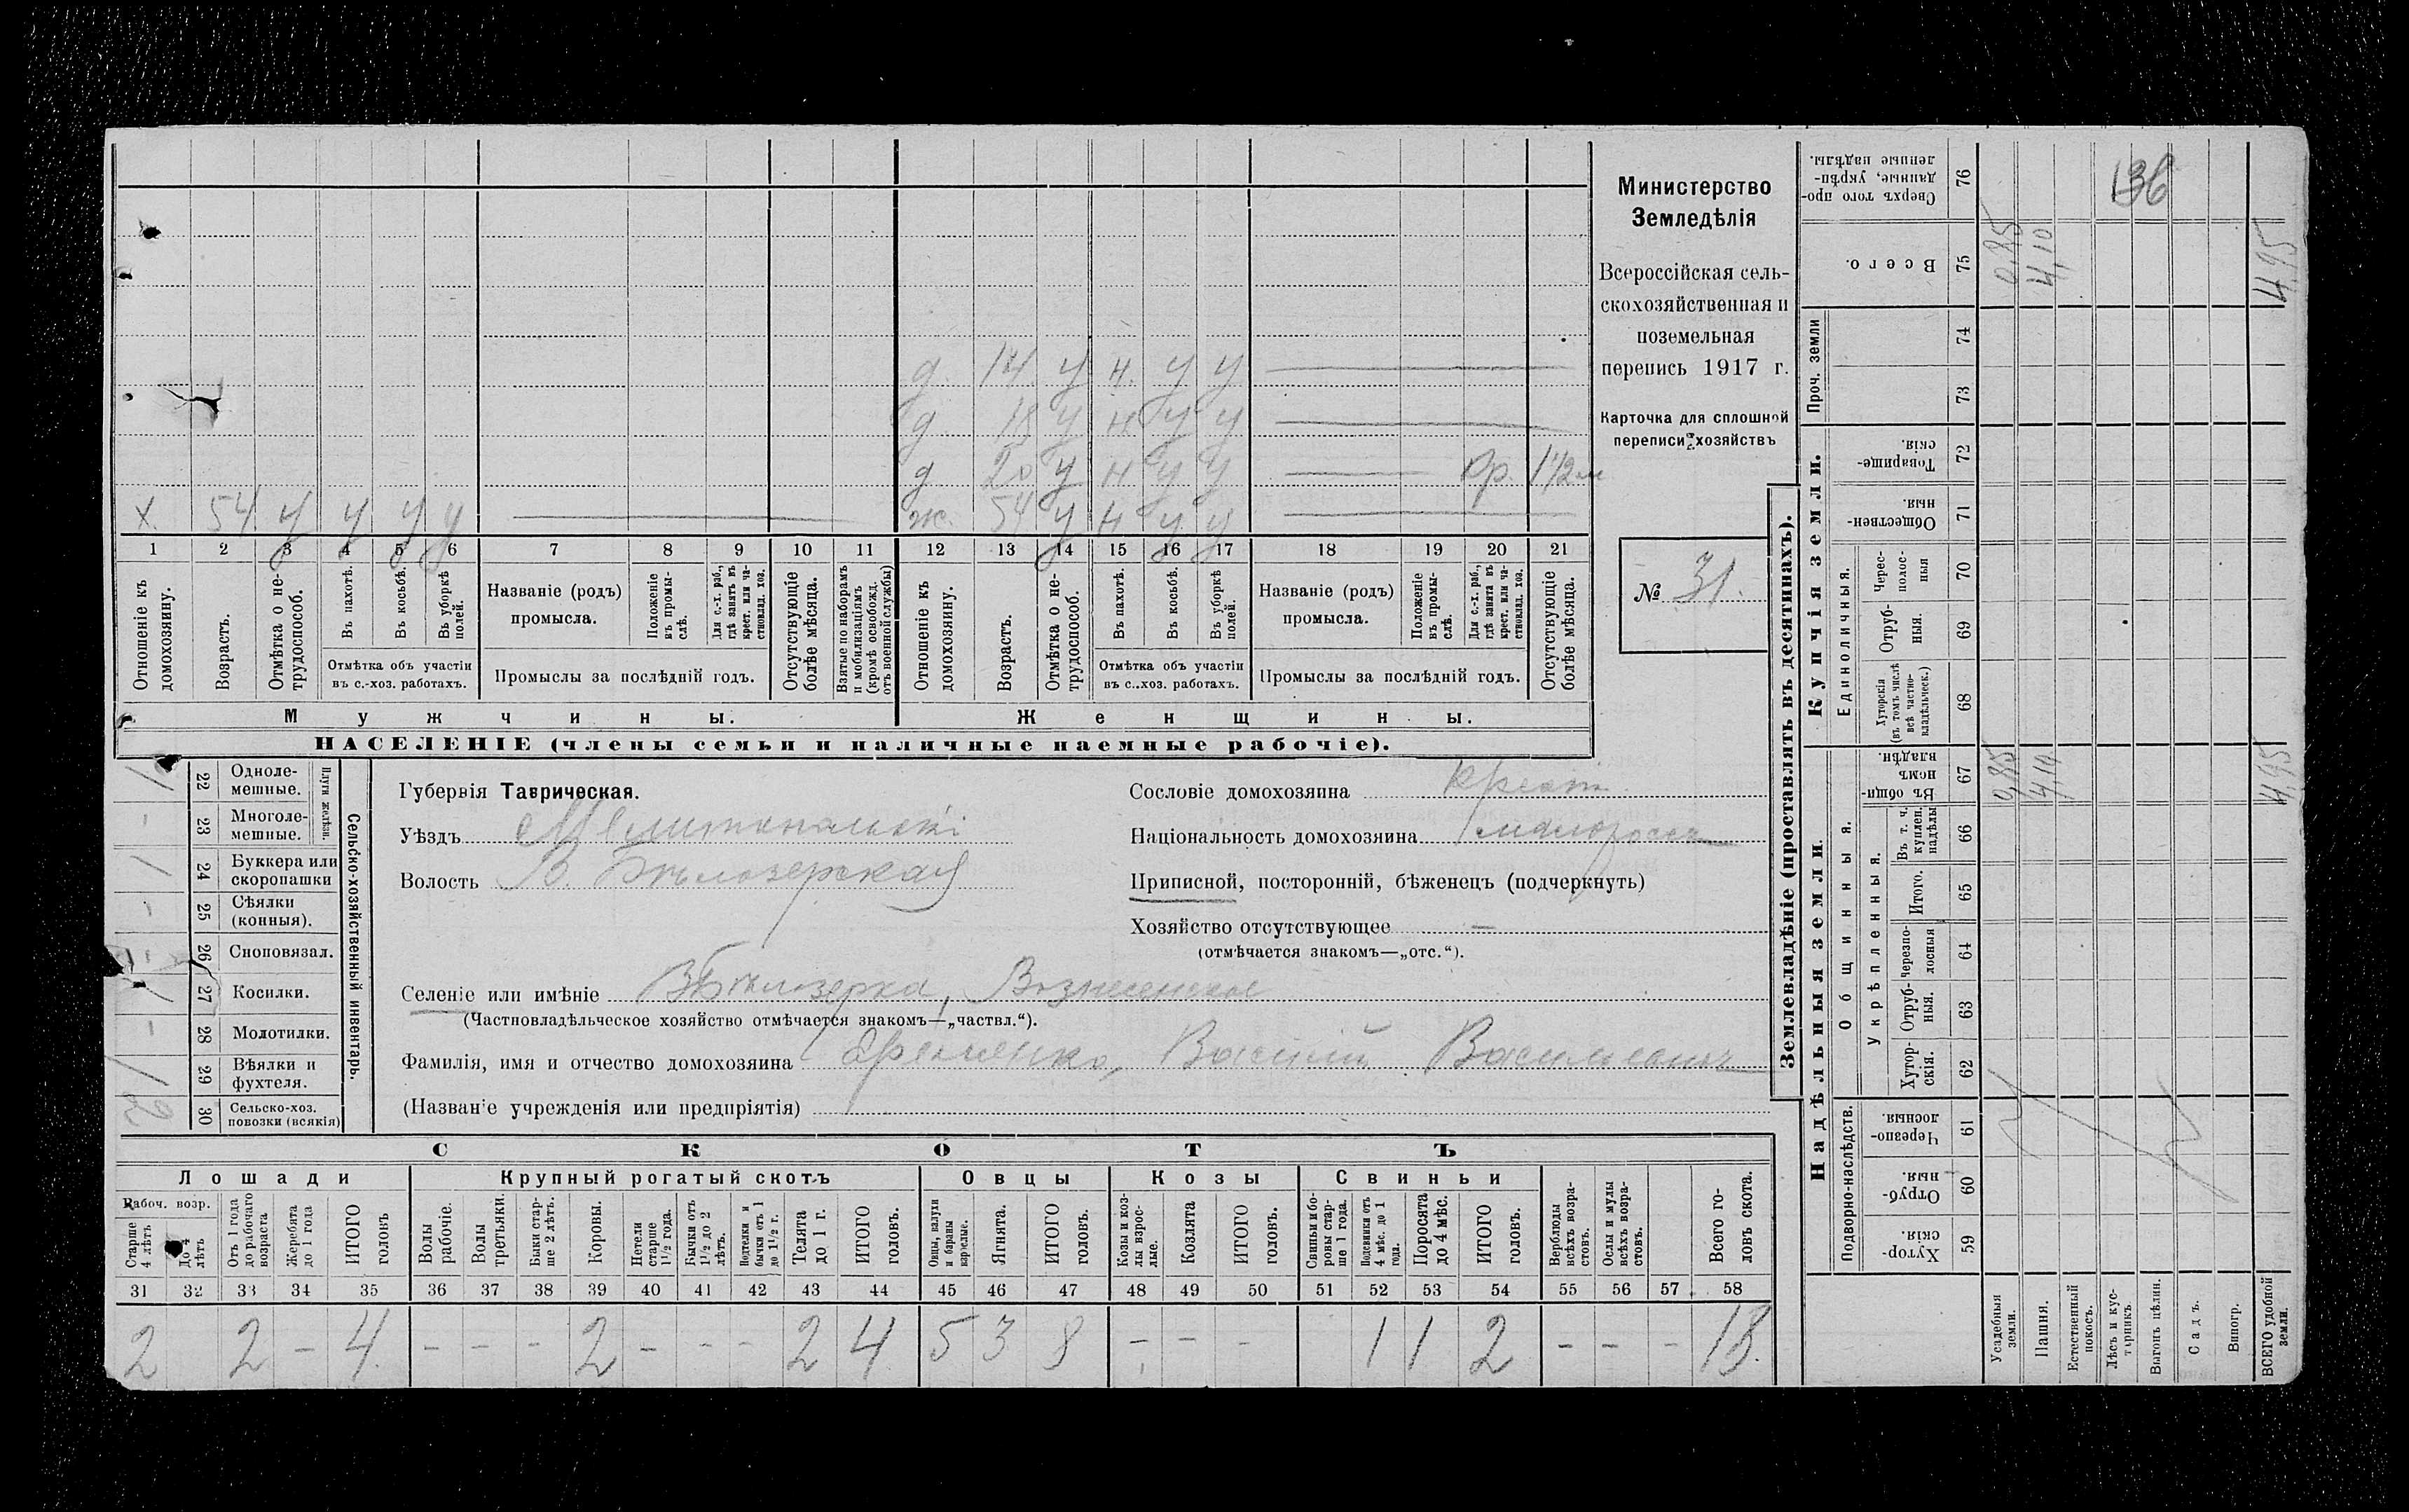 Министерство
Земледѣлія
Всероссійская сель-
скохозяйственная и
поземельная
перепись 1917 г.
Карточка для сплошной
переписи хозяйствъ
№ 31.
д. 14. у н. у у
д 18 у н у у
д 20 у н у у 1 1/2 м
х. 54 у у у у ж. 54 у н у у
1 2 3 4 5 6 7 8 9 10 11 12 13 14 15 16 17 18 19 20 21
Отношеніе къ домохозяину.
Возрастъ.
Отмѣтка о не-трудоспособ.
Въ пахотѣ.
Въ косьбѣ.
Въ уборкѣ полей.
Отмѣтка объ участіи
въ с.-хоз. работахъ.
Названіе (родъ)
промысла.
Положеніе въ промы-слѣ.
Для с.-х. раб., гдѣ занятъ въ крест. или ча-стновлад. хоз.
Промыслы за послѣдній годъ.
Отсутствующіе болѣе мѣсяца.
Взятые по наборамъ и мобилизаціямъ (кромѣ освобожд. отъ военной службы)
Отношеніе къ домохозяину.
Возрастъ.
Отмѣтка о не-трудоспособ.
Въ пахотѣ.
Въ косьбѣ.
Въ уборкѣ полей.
Отмѣтка объ участіи
въ с..хоз. работахъ.
Названіе (родъ)
промысла.
Положеніе въ промы-слѣ.
Для с.-х. раб., гдѣ занята въ крест. или ча-стновлад. хоз.
Промыслы за послѣдній годъ.
Отсутствующіе болѣе мѣсяца.
Мужчины.
Женщины.
НАСЕЛЕНІЕ (члены семьи и наличные наемные рабочіе).
Сельско-хозяйственный инвентарь.
Плуги желѣзн.
1 22 Одноле-мешные.
- 23 Многоле-мешные.
1 24 Буккера или скоропашки
- 25 Сѣялки (конныя).
26 Сноповязал.
27 Косилки.
- 28 Молотилки.
1 29 Вѣялки и фухтеля.
30 Сельско-хоз. повозки (всякія)
Губернія Таврическая.
Уѣздъ Мелитопольскій
Волость В. Бѣлозерская
Сословіе домохозяина крест.
Національность домохозяина малоросс
Приписной, посторонній, бѣженецъ (подчеркнуть)
Хозяйство отсутствующее —
(отмѣчается знакомъ—„отс.“).
Селеніе или имѣніе ВБѣлозерка, Вознесенское
(Частновладѣльческое хозяйство отмѣчается знакомъ—„частвл.“).
Фамилія, имя и отчество домохозяина Еременко, Василій Васильевич
(Названіе учрежденія или предпріятія)
СКОТЪ
Лошади
Крупный рогатый скотъ
Овцы
Козы
Свиньи
Рабоч. возр.
Старше 4 лѣтъ
До 4 лѣтъ
Отъ 1 года до рабочаго возраста
Жеребята до 1 года
ИТОГО головъ
Волы рабочіе.
Волы третьяки.
Быки стар-ше 2 лѣтъ.
Коровы.
Нетели старше 1 1/2 года.
Бычки отъ 1 1/2 до 2 лѣтъ.
Подтелки и бычки отъ 1 до 1 1/2 г.
Телята до 1 г.
ИТОГО головъ.
Овцы, валухи и бараны взрослые.
Ягнята.
ИТОГО головъ.
Козы и коз-лы взрос-лые.
Козлята
ИТОГО головъ.
Свиньи и бо-ровы стар-ше 1 года.
Подсвинки отъ 4 мѣс. до 1 года.
Поросята до 4 мѣс.
ИТОГО головъ.
Верблюды всѣхъ возра-стовъ.
Ослы и мулы всѣхъ возра-стовъ.
Всего го-ловъ скота.
31 32 33 34 35 36 37 38 39 40 41 42 43 44 45 46 47 48 49 50 51 52 53 54 55 56 57 58
2 2 - 4. - - - 2 - - - 2 4 5 3 8 - - - 1 1 2 - - - 18.
Землевладѣніе (проставлять въ десятинахъ).
Надѣльныя земли.
Купчія земли.
Проч. земли
Подворно-наслѣдств.
Общинныя.
Укрѣпленныя.
Единоличныя.
Сверхъ того про-данные, укрѣп-ленные надѣлы. 76
Всего. 75
74
73
Товарище-скія. 72
Обществен-ныя. 71
Черес-полос-ныя 70
Отруб-ныя. 69
Хуторскія (въ томъ числѣ всѣ частно-владѣльческ.) 68
Въ общин-номъ владѣн. 67
Въ т. ч. куплен. надѣлы 66
Итого. 65
Черезпо-лосныя 64
Отруб-ныя. 63
Хутор-скія. 62
Черезпо-лосныя. 61
Отруб-ныя. 60
Хутор-скія. 59
Усадебныя земли.
Пашня.
Естественный покосъ.
Лѣсъ и кус-тарникъ.
Выгонъ цѣлин.
Садъ.
Виногр.
ВСЕГО удобной земли.
136
0,85 4,10 4,95
0,85 4,10 4,95